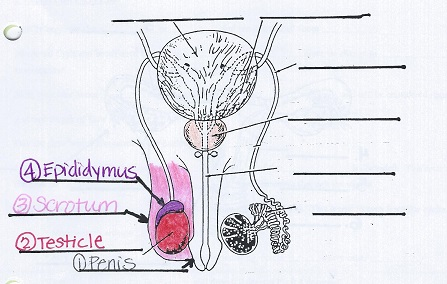 ④Epididymus
③Scrotum
②Testicle
①Penis